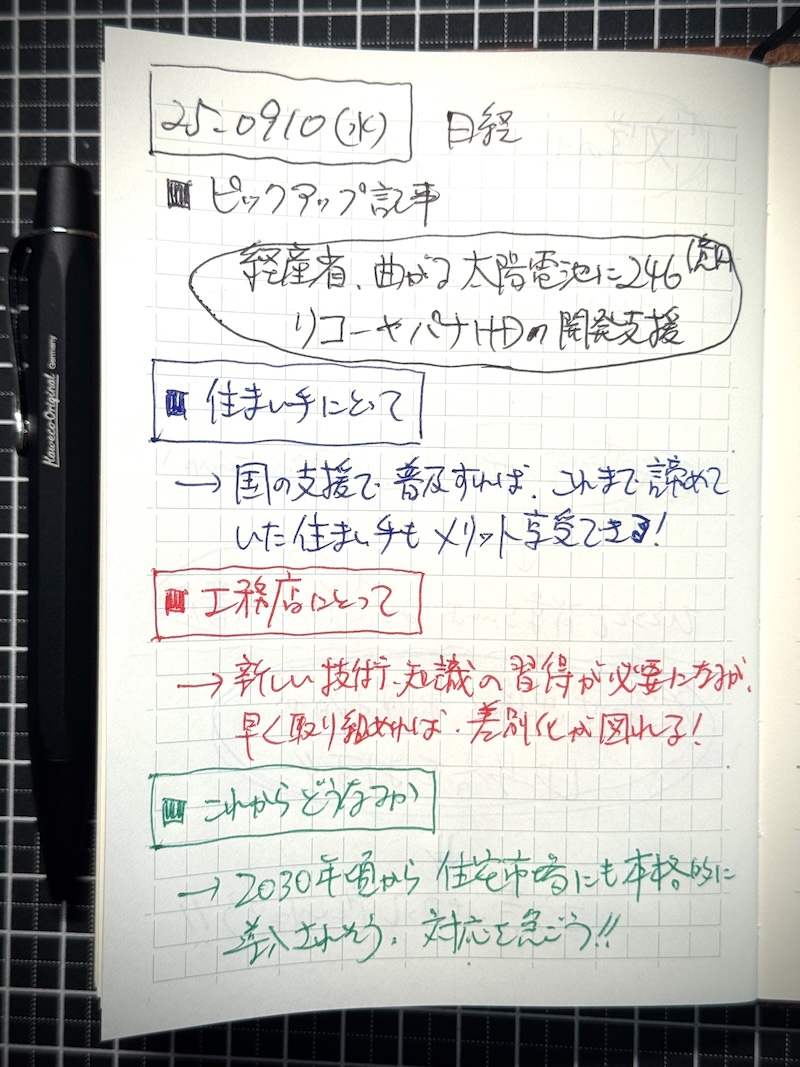 25-0910(水) 日経
■ ピックアップ記事
経産省、曲がる太陽電池に246億円
リコーやパナHDの開発支援
■ 住まい手にとって
→ 国の支援で普及すれば、これまで諦めて
いた住まい手もメリット享受できる!
■ 工務店にとって
→ 新しい技術、知識の習得が必要になるが、
早く取り組めれば、差別化が図れる!
■ これからどうなるか
→ 2030年頃から住宅市場にも本格的に
導入されそう。対応を急ごう!!
Kaweco Original Germany